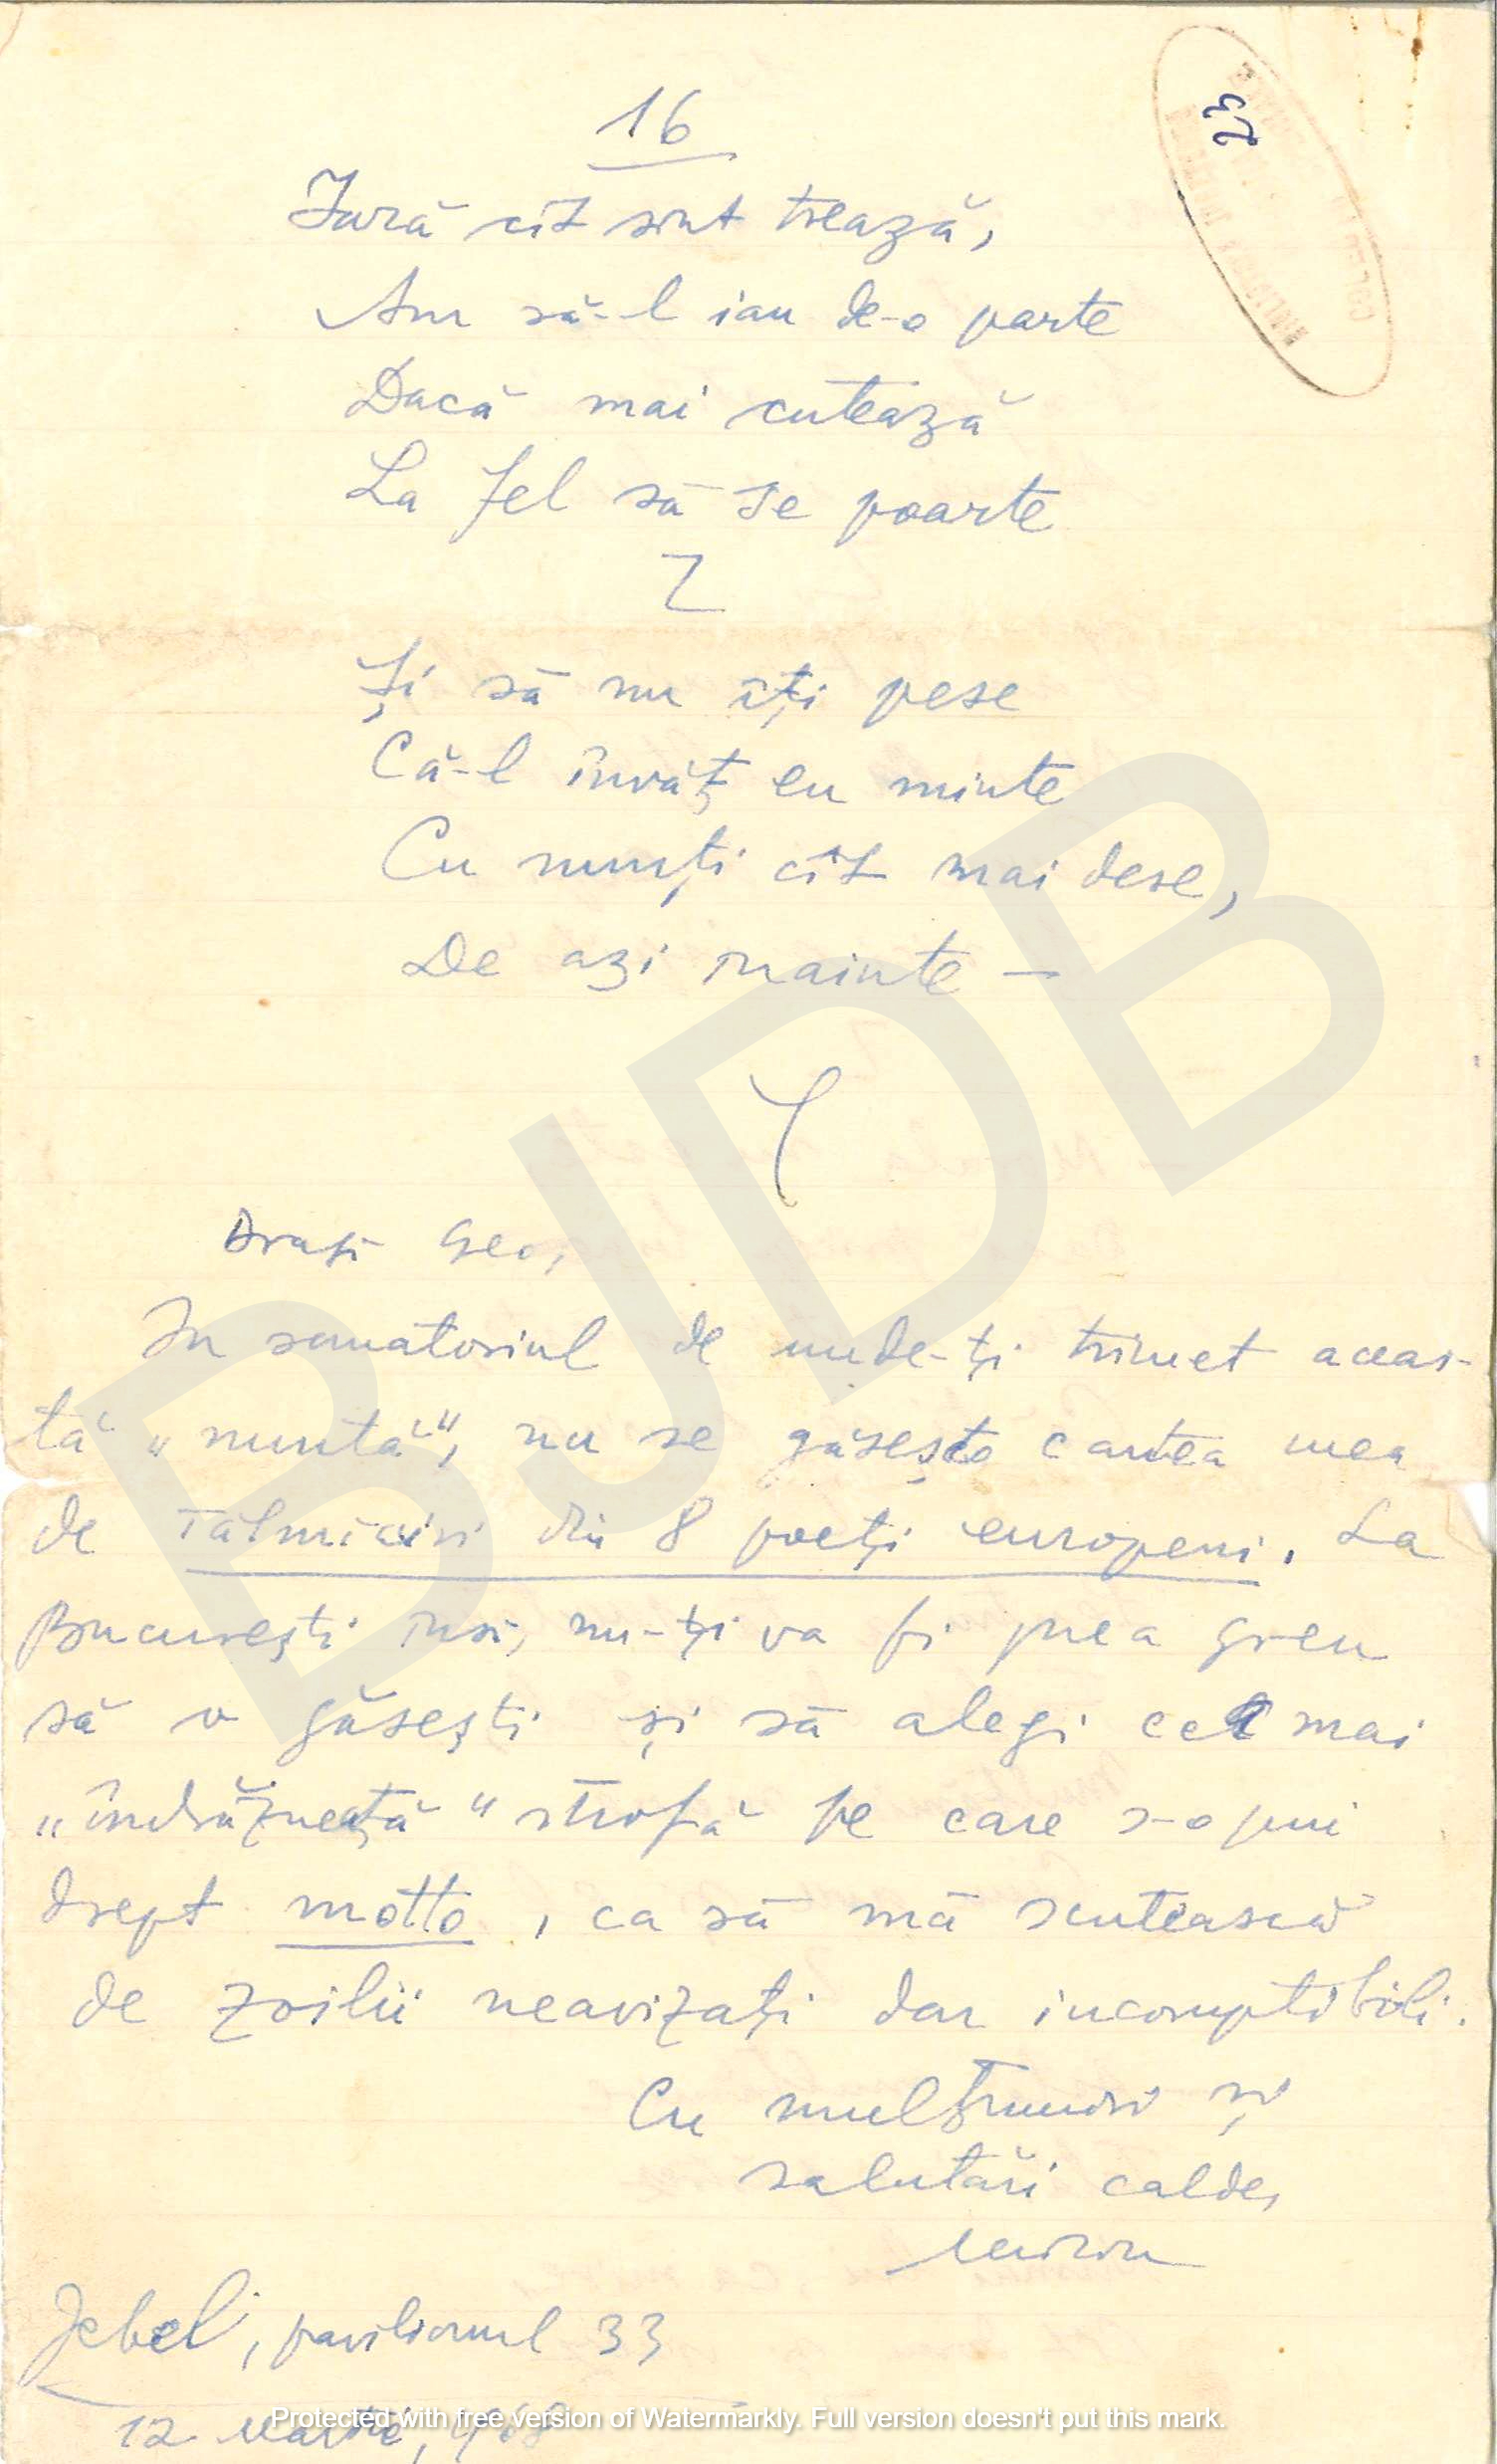 16
23
Iară cît sînt trează,
Am să-l iau de-o parte
Dacă mai cutează
La fel să se poarte
Și să nu îți pese
Că-l învăț eu minte
Cu nunți cît mai dese,
De azi înainte —
Dragă Geo,
In sanatoriul de unde-ți trimet aceas-
tă „nuntă", nu se găsește cartea mea
de Tălmăciri din 8 poeți europeni. La
București însă, nu-ți va fi prea greu
să o găsești și să alegi cea mai
„îndrăzneață" strofă pe care s-o pui
drept motto, ca să mă scutească
de zoilii neavizați dar incoruptibili.
Cu mulțumiri și
salutări calde,
Jebel, pavilionul 33
12 Martie, 1968
BJDB
Protected with free version of Watermarkly. Full version doesn't put this mark.